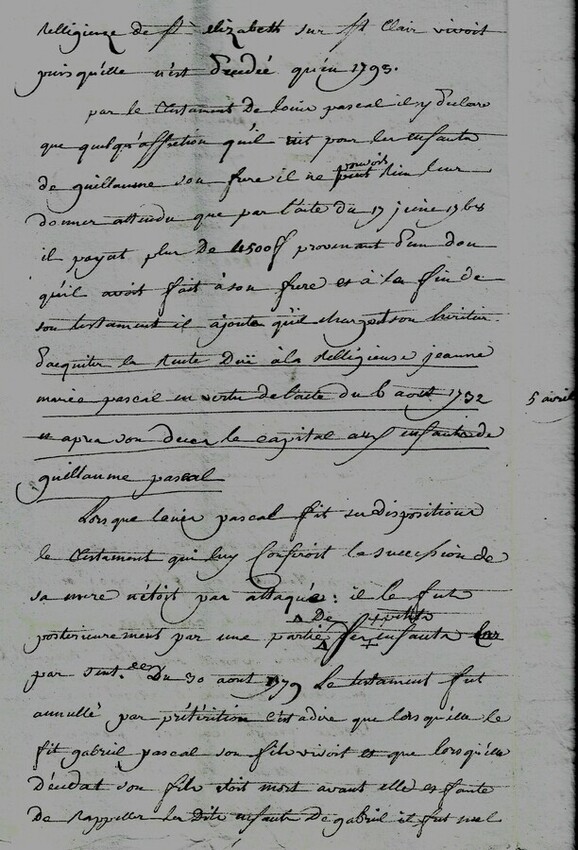 Relligieuze de Ste elizabeth sur St Clair vivoit
puisqu'elle n'est decedée qu'en 1793.
par le testament de louis pascal il y declare
que quelqu'affection qu'il eut pour les enfants
de guillaume son frere il ne pouvoit rien leur
donner attendu que par l'acte du 17 juin 1768
il payat plus De 4500 ff provenant d'un don
qu'il avoit fait à son frere et à la fin de
son testament il ajoute qu'il charge son heritier
d'acquiter la Rente Düe à la Relligieuse jeanne
marie pascal en vertu de l'acte du 6 aout 1732
5 avril
et apres son deces le capital aux enfants de
guillaume pascal
Lorsque louis pascal fit ses dispositions
le testament qui luy Conferoit la succession de
sa mere n'étoit pas attaqué: il le fut
De petits
posterieurement par une partie des enfants
par sentce Du 30 aout 1779 Le testament fut
annullé par prétérition c'est adire que lorsqu'elle le
fit gabriel pascal son fils vivoit et que lorsqu'elle
décedat son fils étoit mort avant elle et faute
de Rappeller les Dits enfants De gabriel il fut nul